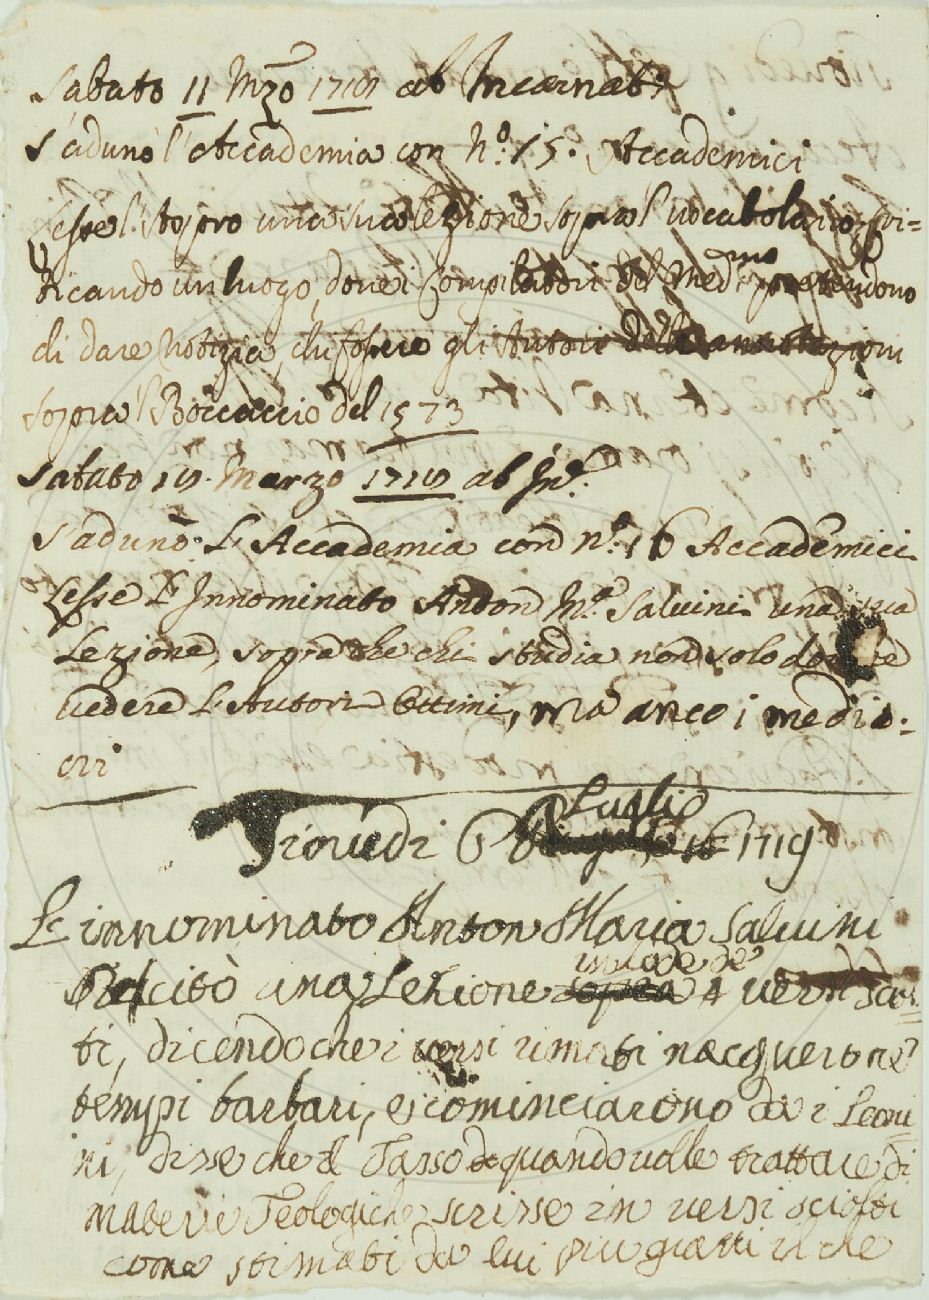 Sabato 11 Mzo 1718 ab Incarnate
s'adunò l'Accademia con n.º 15. Accademici
Lesse l'stopro una sua lezione sopra l'vocabolario, cri=
ticando un luogo, dove i Compilatori del Medmo pretendono
di dare notizia, chi fossero gli Autori delle annotazioni
sopra 'l Boccaccio del 1573
Sabato 18. Marzo 1718 ab In.e
S'adunò L'Accademia con n.º 16 Accademici
Lesse L'Innominato Anton M.a Salvini una sua
Lezione, sopra che chi studia non solo
vedere L'Autori Ottimi, ma anco i medio:
cri
Giovedì 6 Luglio 1719
L'innominato Anton Maria Salvini
Recitò una Lezione in lode de versi sciol
ti, dicendo che i versi rimati nacquero ne'
tempi barbari, e cominciarono da i Leoni
ni, disse che il Tasso quando volle trattare di
materie Teologiche scrisse in versi sciolti
come stimati da lui più gravi il che